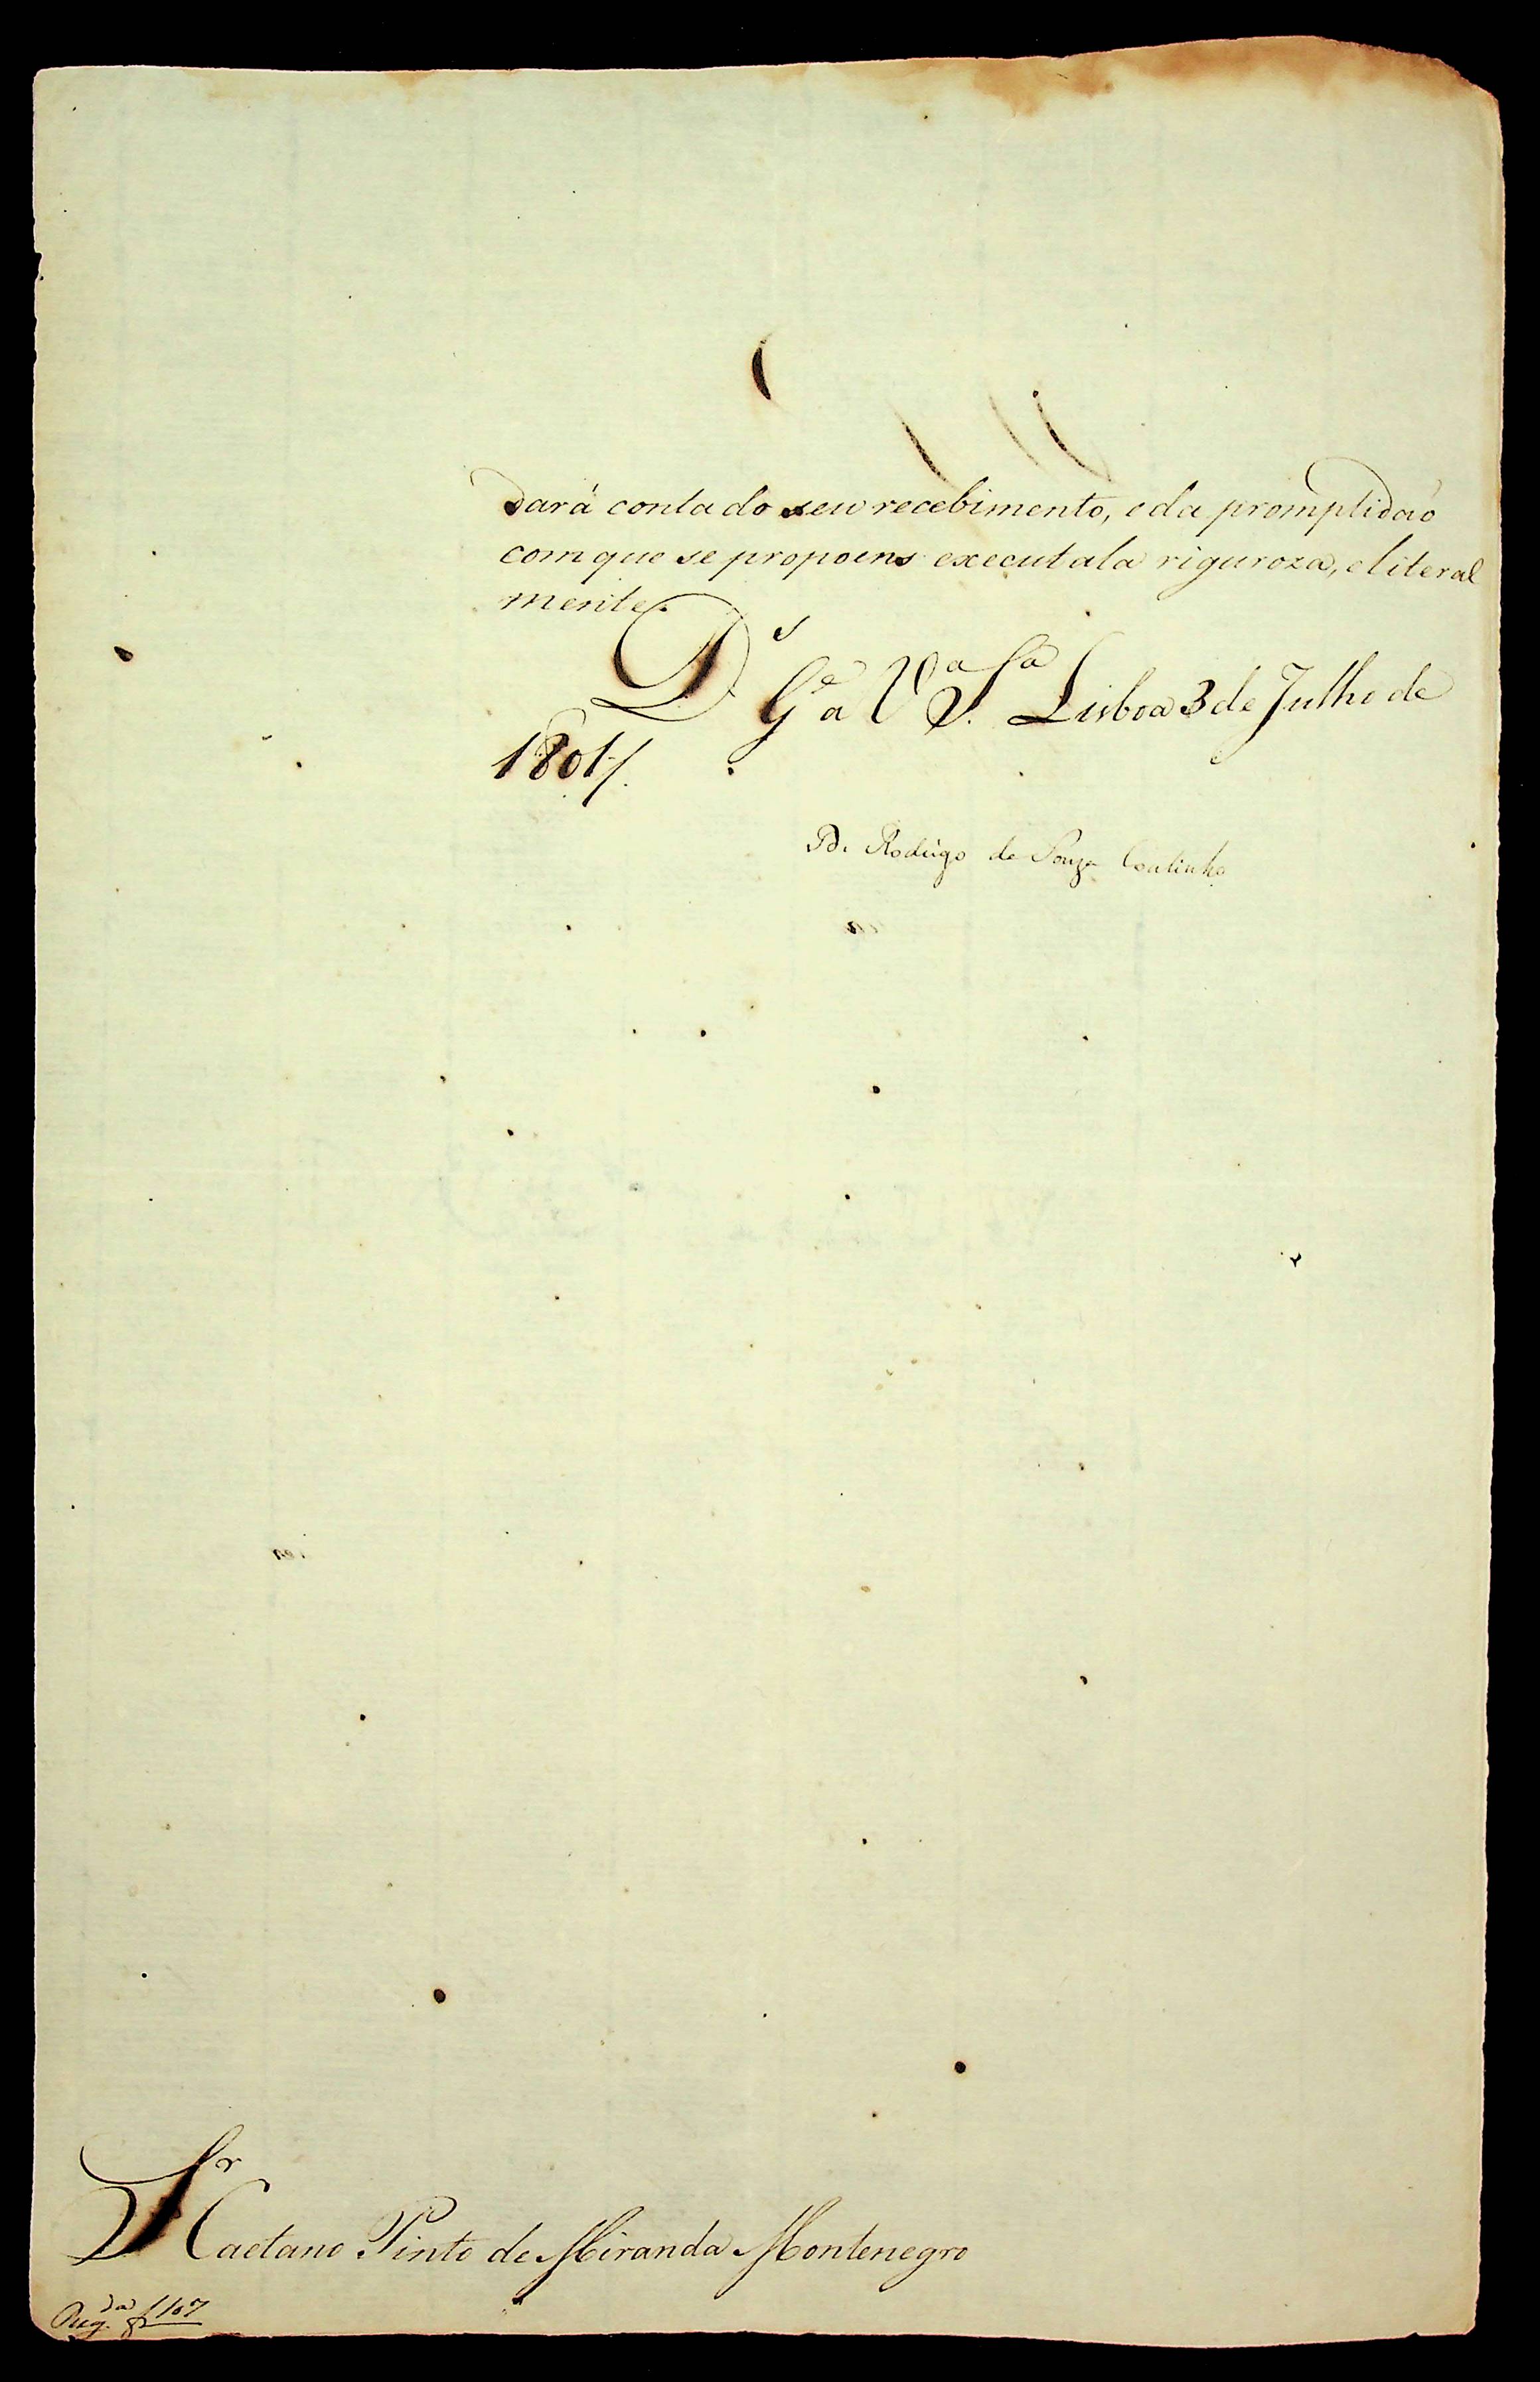 dará conta do seu recebimento, e da promptidaõ
com que se propoens executala riguroza, e literal
mente.
D.s G.e a V.a S.a Lisboa 3 de Julho de
1801 //.
D. Rodrigo de Souza Coutinho
S.r Caetano Pinto de Miranda Montenegro
Reg.da f 107